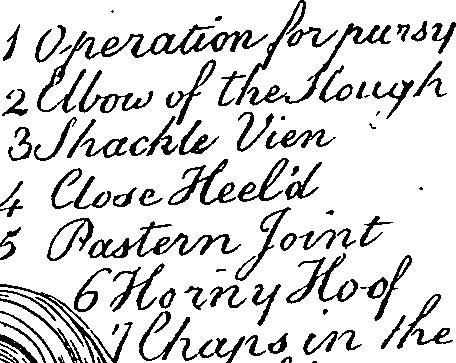 1 Operation for pursy
2 Elbow of the Slough
3 Shackle Vien
4 Close Heel'd
5 Pastern Joint
6 Horny Hoof
7 Chaps in the